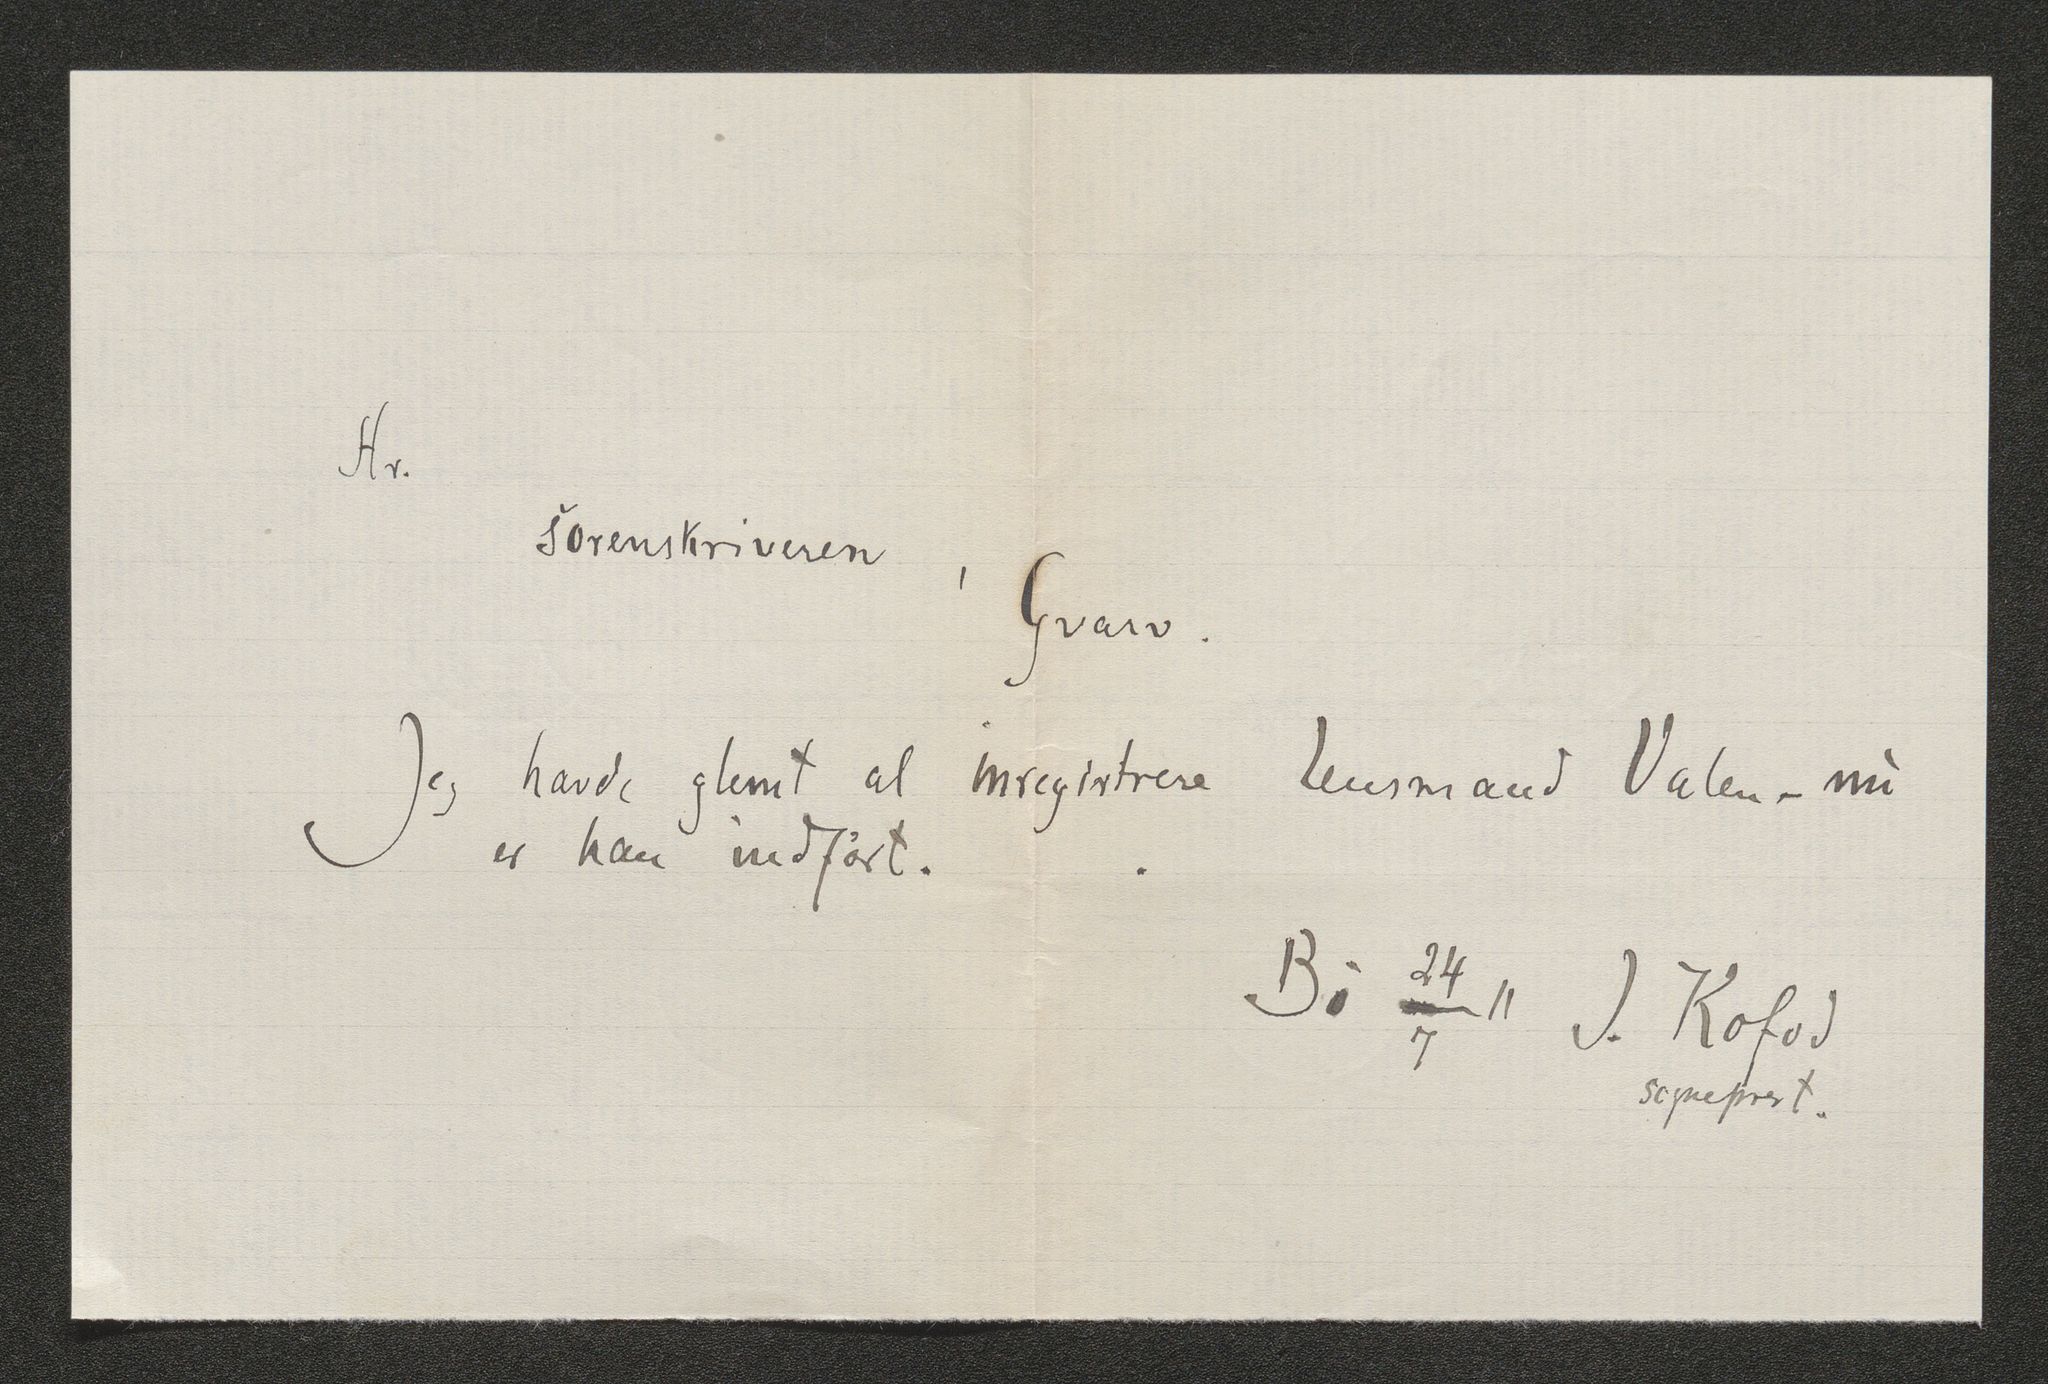 Hr.
sörenskriveren,
Gvarv.
Jeg havde glemt at inregistrere Lensmand Valen - nu
er han indført.
Bö 24/7 11 J. Kofod
sogneprest.